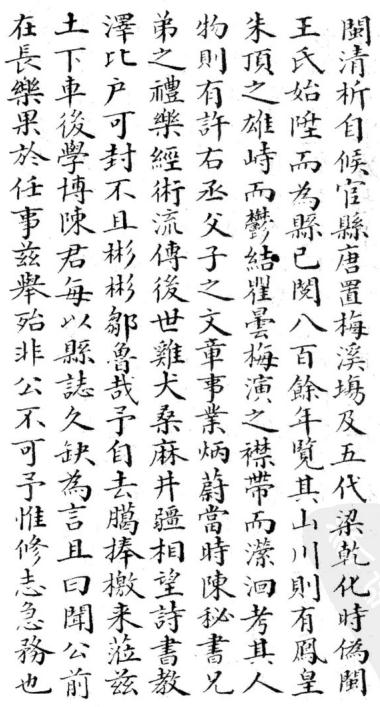 閩清析自候官縣唐置梅溪塲及五代梁乾化時偽閩
王氏始陞而為縣已閱八百餘年覽其山川則有鳳皇
朱頂之雄峙而鬱結瞿曇梅演之襟帶而瀠洄考其人
物則有許右丞父子之文章事業炳蔚當時陳秘書兄
弟之禮樂經術流傳後世雞犬桑麻井疆相望詩書教
澤比户可封不且彬彬鄒魯哉予自去臈捧檄来蒞兹
土下車後學博陳君每以縣誌久缺為言且曰聞公前
在長樂果於任事兹舉殆非公不可予惟修志急務也